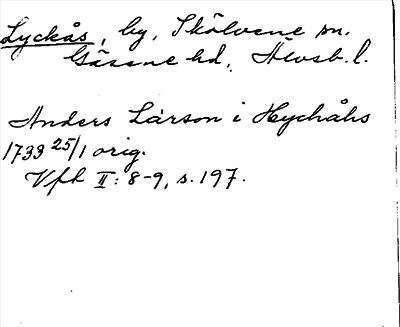 Lyckås, by, Skölvene sn.
Gäsene hd, Älvsb. l.
Anders Larson i Hychåhs
1733 25/1 orig.
Vfk II: 8-9, s. 197.